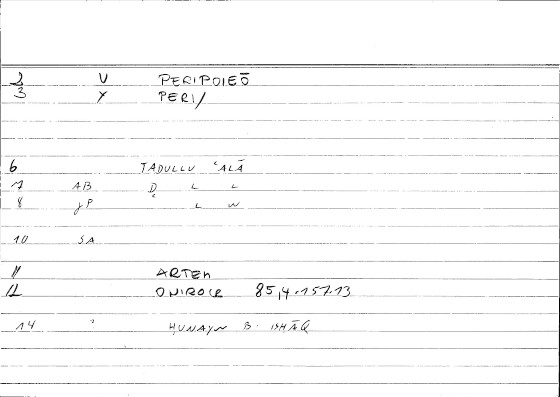 2 V PERIPOIEŌ
3 Y PERI/
6 TADULLU ʿALĀ
7 AB Ḍ L L
8 JP L W
10 SA
11 ARTEM
12 ONIROCR 85,4.157.13
14 HUNAYN B. ISHĀQ